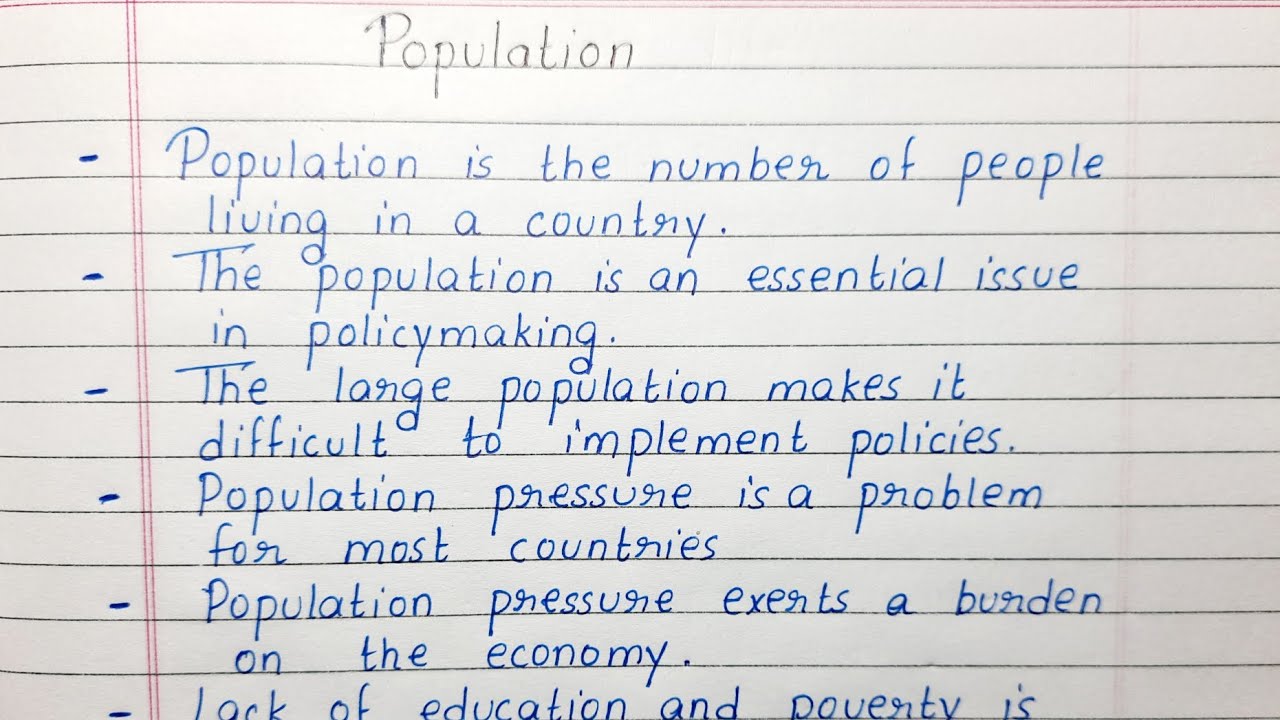 Population
- Population is the number of people
living in a country.
- The population is an essential issue
in policymaking.
- The large population makes it
difficult to implement policies.
- Population pressure is a problem
for most countries
- Population pressure exerts a burden
on the economy.
- Lack of education and poverty is